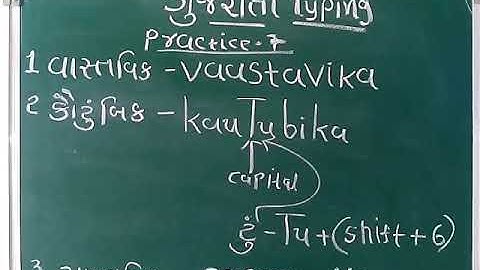 ગુજરાતી Typing
Practice-7
1 વાસ્તવિક - vaastavika
2 કૌટુંબિક - kauTubika
capital
ટું - Tu+(shift+6)
3